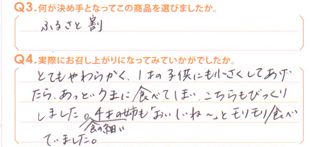 Q3.何が決め手となってこの商品を選びましたか。
ふるさと割
Q4.実際にお召し上がりになってみていかがでしたか。
とてもやわらかく、1才の子供にも小さくしてあげ
たら、あっという間に食べてしまい、こちらもびっくり
しました。4才の姉も「おいしいね~」とモリモリ食べ
食の細い
ていました。